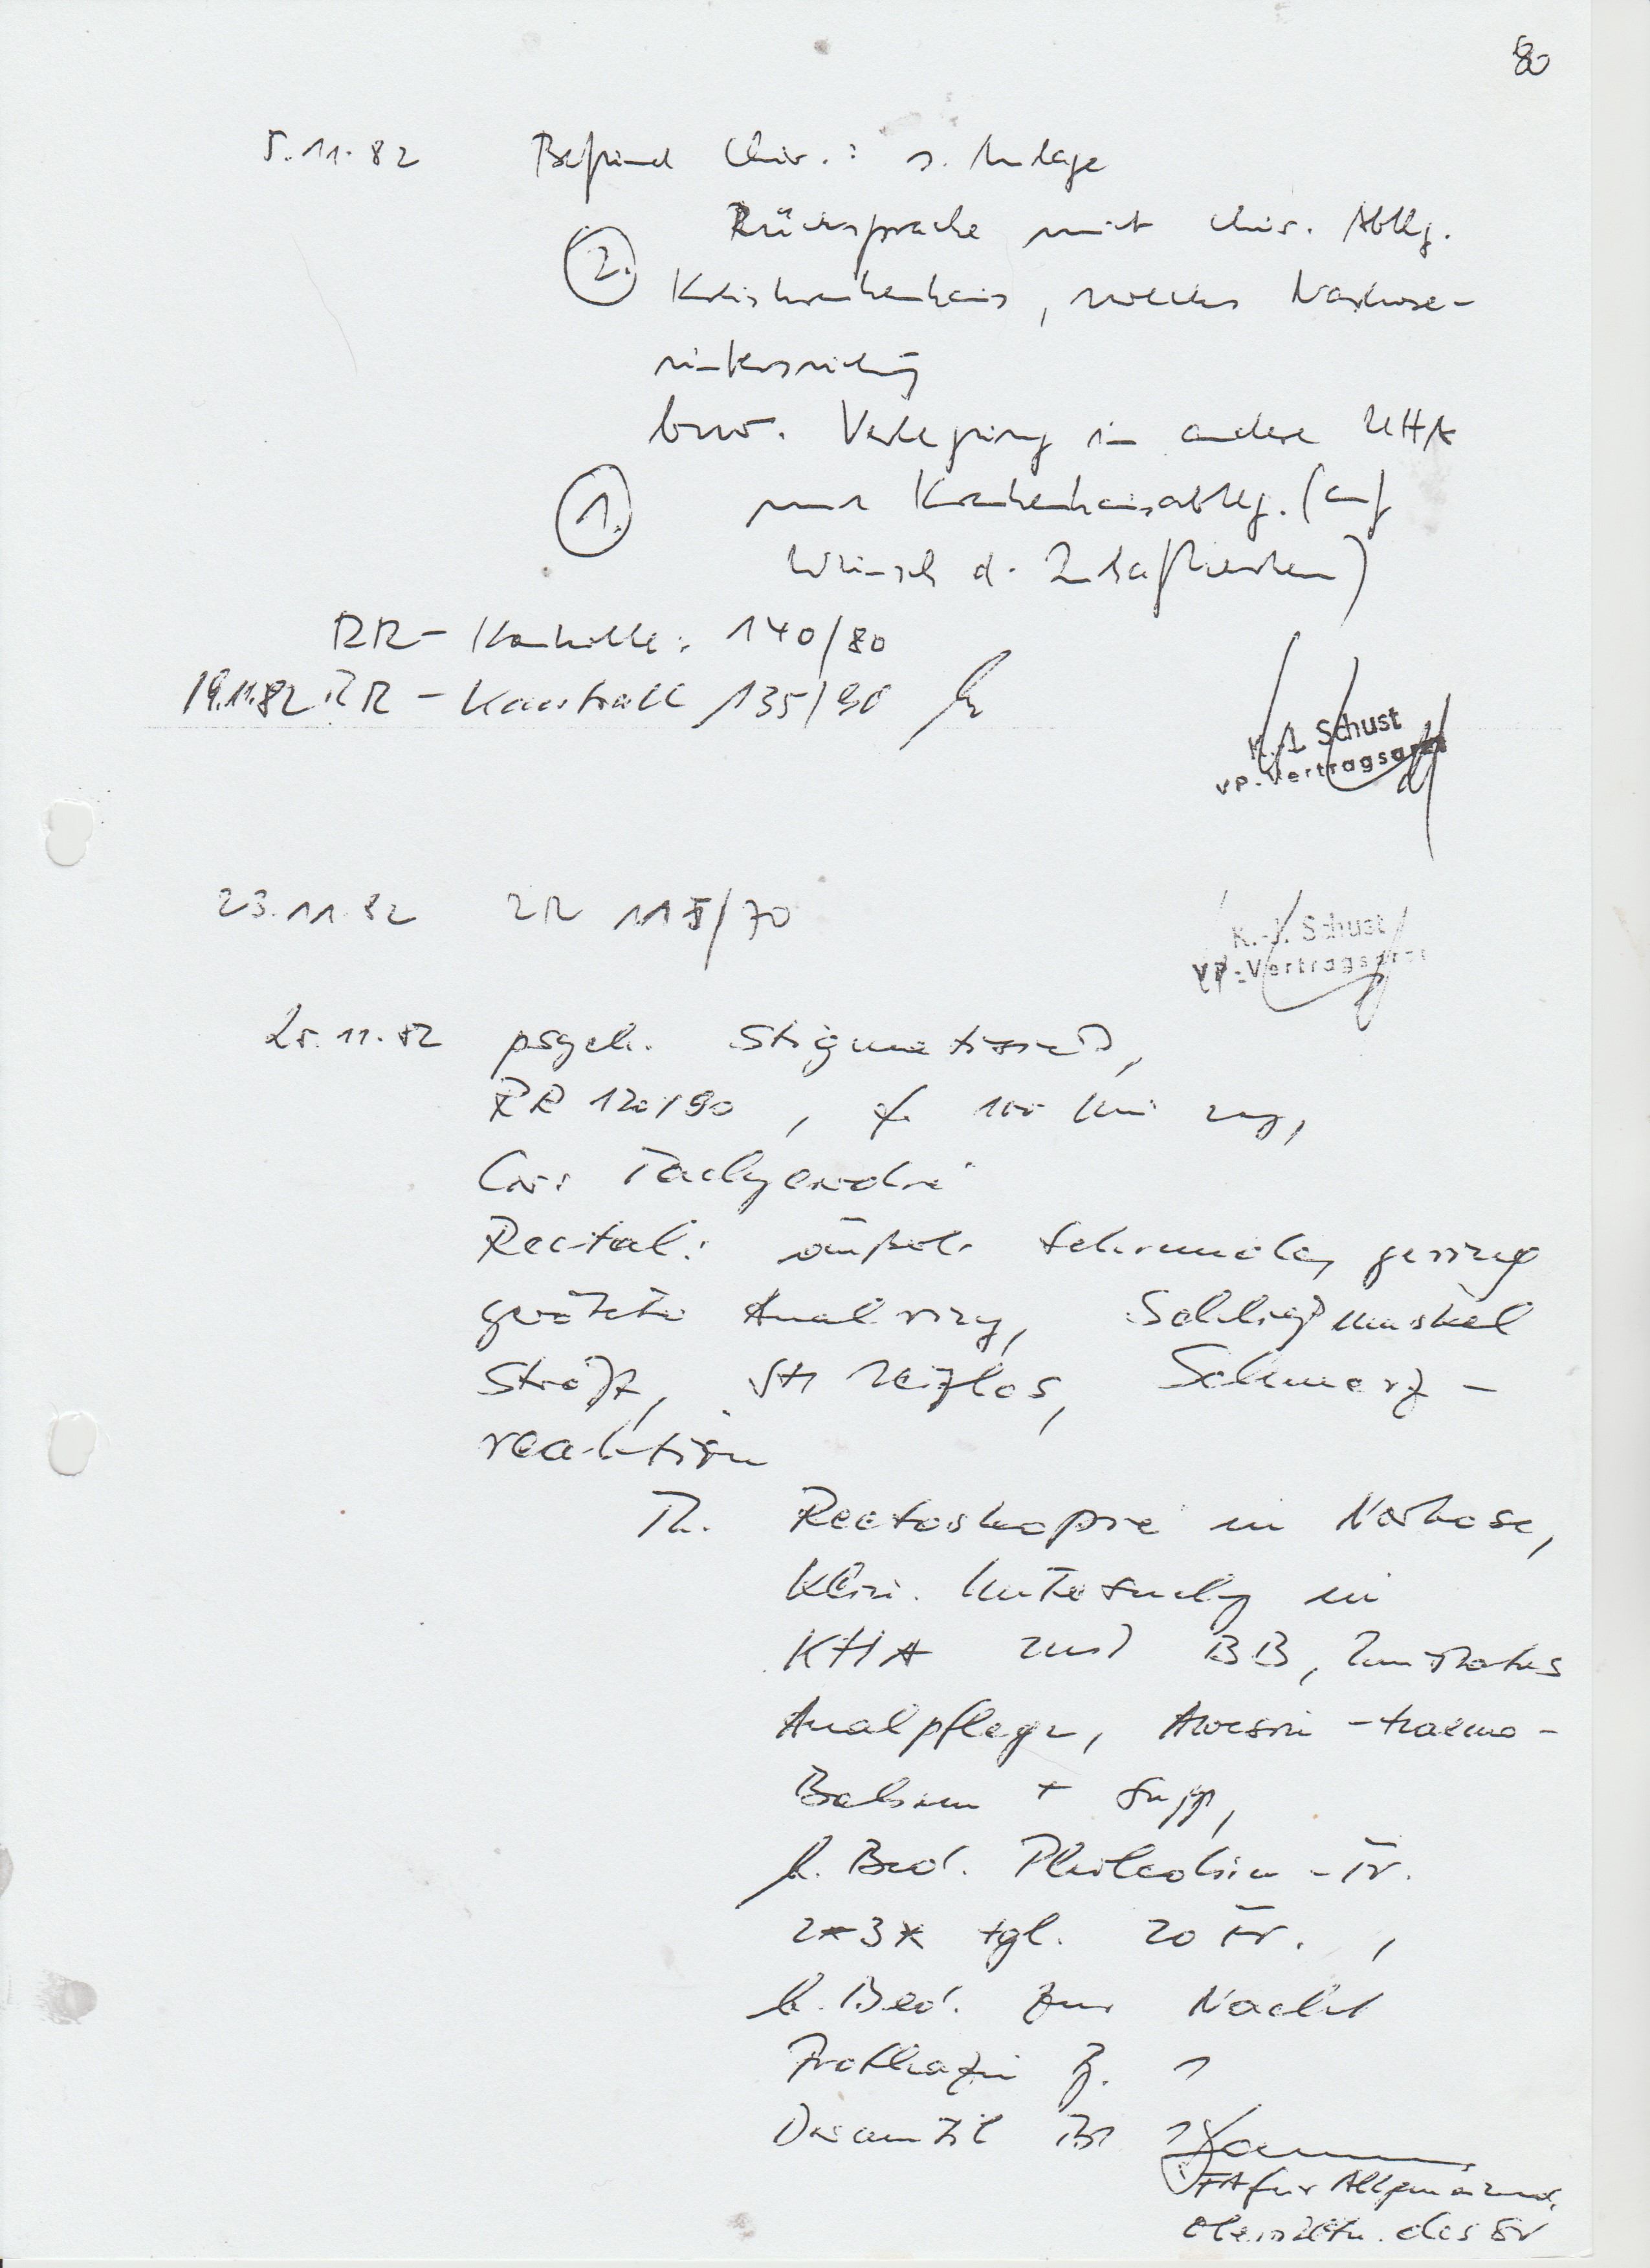 80
5.11.82 Befund Chir.: s. Anlage
Rücksprache mit Chir. Abtlg.
2. Kreiskrankenhaus, zwecks Narkose-
untersuchung
bzw. Verlegung in andere UHA
1. mit Krankenhausabtlg. (auf
Wunsch d. Inhaftierten)
RR-Kontrolle: 140/80
19.11.82 RR-Kontrolle 135/90
K.-J. Schust
VP-Vertragsarzt
23.11.82 RR 115/70
K.-J. Schust
VP-Vertragsarzt
25.11.82 psych. stigmatisiert,
RR 120/90, 100
Cor: Tachycardie
Rectal: äußerl. gering
geröteter Analring, Schließmuskel
straff, Schmerz-
reaktion
Th. Rectoskopie in Narkose,
Klin. Untersuchg in
KHA BB,
Analpflege, -haemo-
Balsam + Supp,
b. Bed. -Tr.
2-3x tgl. 20 Tr.,
b. Bed. zur Nacht
Prothazin 1
FA für Allgemeinmed.
des SV